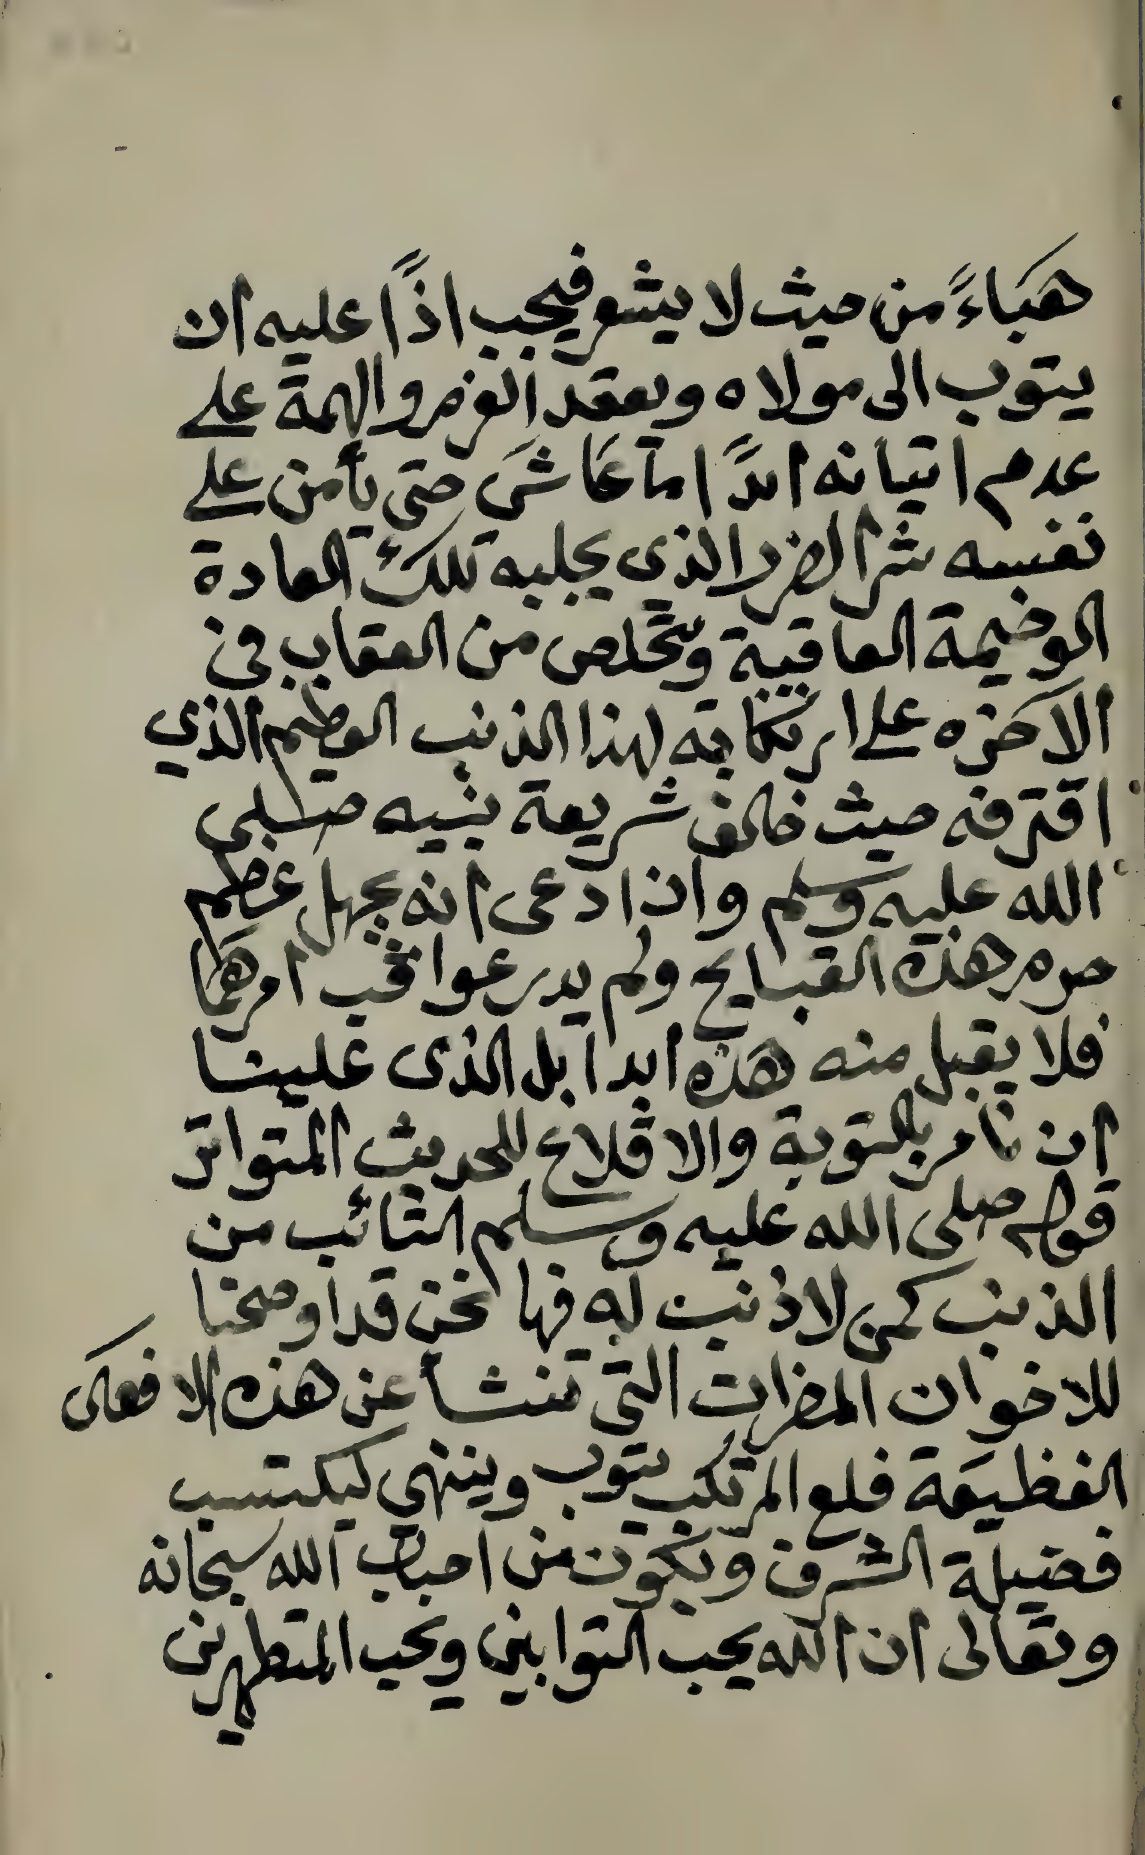 هَبَاءً من حيث لا يشعر فيجب اذًا عليه ان
يتوب الى مولاه ويعقد العزم والهمة على
عدم اتيانه ابدًا ما عَاشَ حتى يأمن على
نفسه شر الضرر الذى يجلبه تلك العادة
الوخيمة العاقبة ويتخلص من العقاب فى
الاخره على ارتكابه لهذا الذنب العظيم الذي
اقترفه حيث خالف شريعة نبيه صلى
الله عليه وسلم وان ادعى انه يجهل عظم
حرم هذه القبايح ولم يدر عواقب امرها
فلا يقبل منه هذه ابدا بل الذى علينا
ان نأمر بالتوبة والاقلاع للحديث المتواتر
قوله صلى الله عليه وسلم التائب من
الذنب كمن لا ذنب له فها نحن قد اوضحنا
للاخوان المضرات التى تنشأ عن هذه الافعال
الفظيعة فلعل المرتكب يتوب وينتهي ليكتسب
فضيلة الشرف ويكون من احباب الله سبحانه
وتعالى ان الله يحب التوابين ويحب المتطهرين